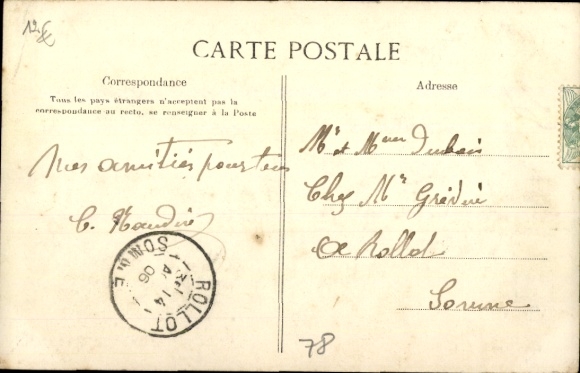 12 €
CARTE POSTALE
Correspondance
Tous les pays étrangers n'acceptent pas la
correspondance au recto, se renseigner à la Poste
Mes amitiés pour tous
C.
ROLLOT
SOMME
14
06
Adresse
Mr et Mme Dubois
Chez Mr
à Rollot
Somme
78